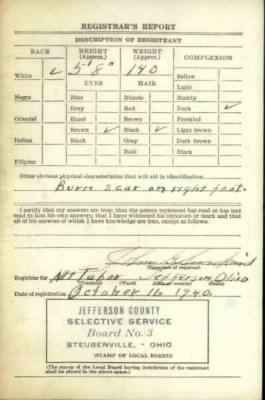 REGISTRAR'S REPORT
DESCRIPTION OF REGISTRANT
RACE HEIGHT (Approx.) WEIGHT (Approx.) COMPLEXION
White ✓ 5' 8" 140 Sallow
EYES HAIR Light
Negro Blue Blonde Ruddy
Gray Red Dark ✓
Oriental Hazel Brown Freckled
Brown ✓ Black ✓ Light brown
Indian Black Gray Dark brown
Bald Black
Filipino
Other obvious physical characteristics that will aid in identification.
Burn scar on right foot.
I certify that my answers are true; that the person registered has read or has had
read to him his own answers; that I have witnessed his signature or mark and that
all of his answers of which I have knowledge are true, except as follows:
(Signature of registrar)
Registrar for Mt Tabor Jefferson Ohio
(Precinct) (Ward) (City or county) (State)
Date of registration October 16 1940
JEFFERSON COUNTY
SELECTIVE SERVICE
Board No. 3
STEUBENVILLE, - OHIO
(STAMP OF LOCAL BOARD)
(The stamp of the Local Board having jurisdiction of the registrant
shall be placed in the above space.)